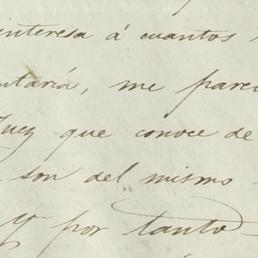 interesa á cuantos
me
Juez que conoce de
son del mismo
Y por tanto